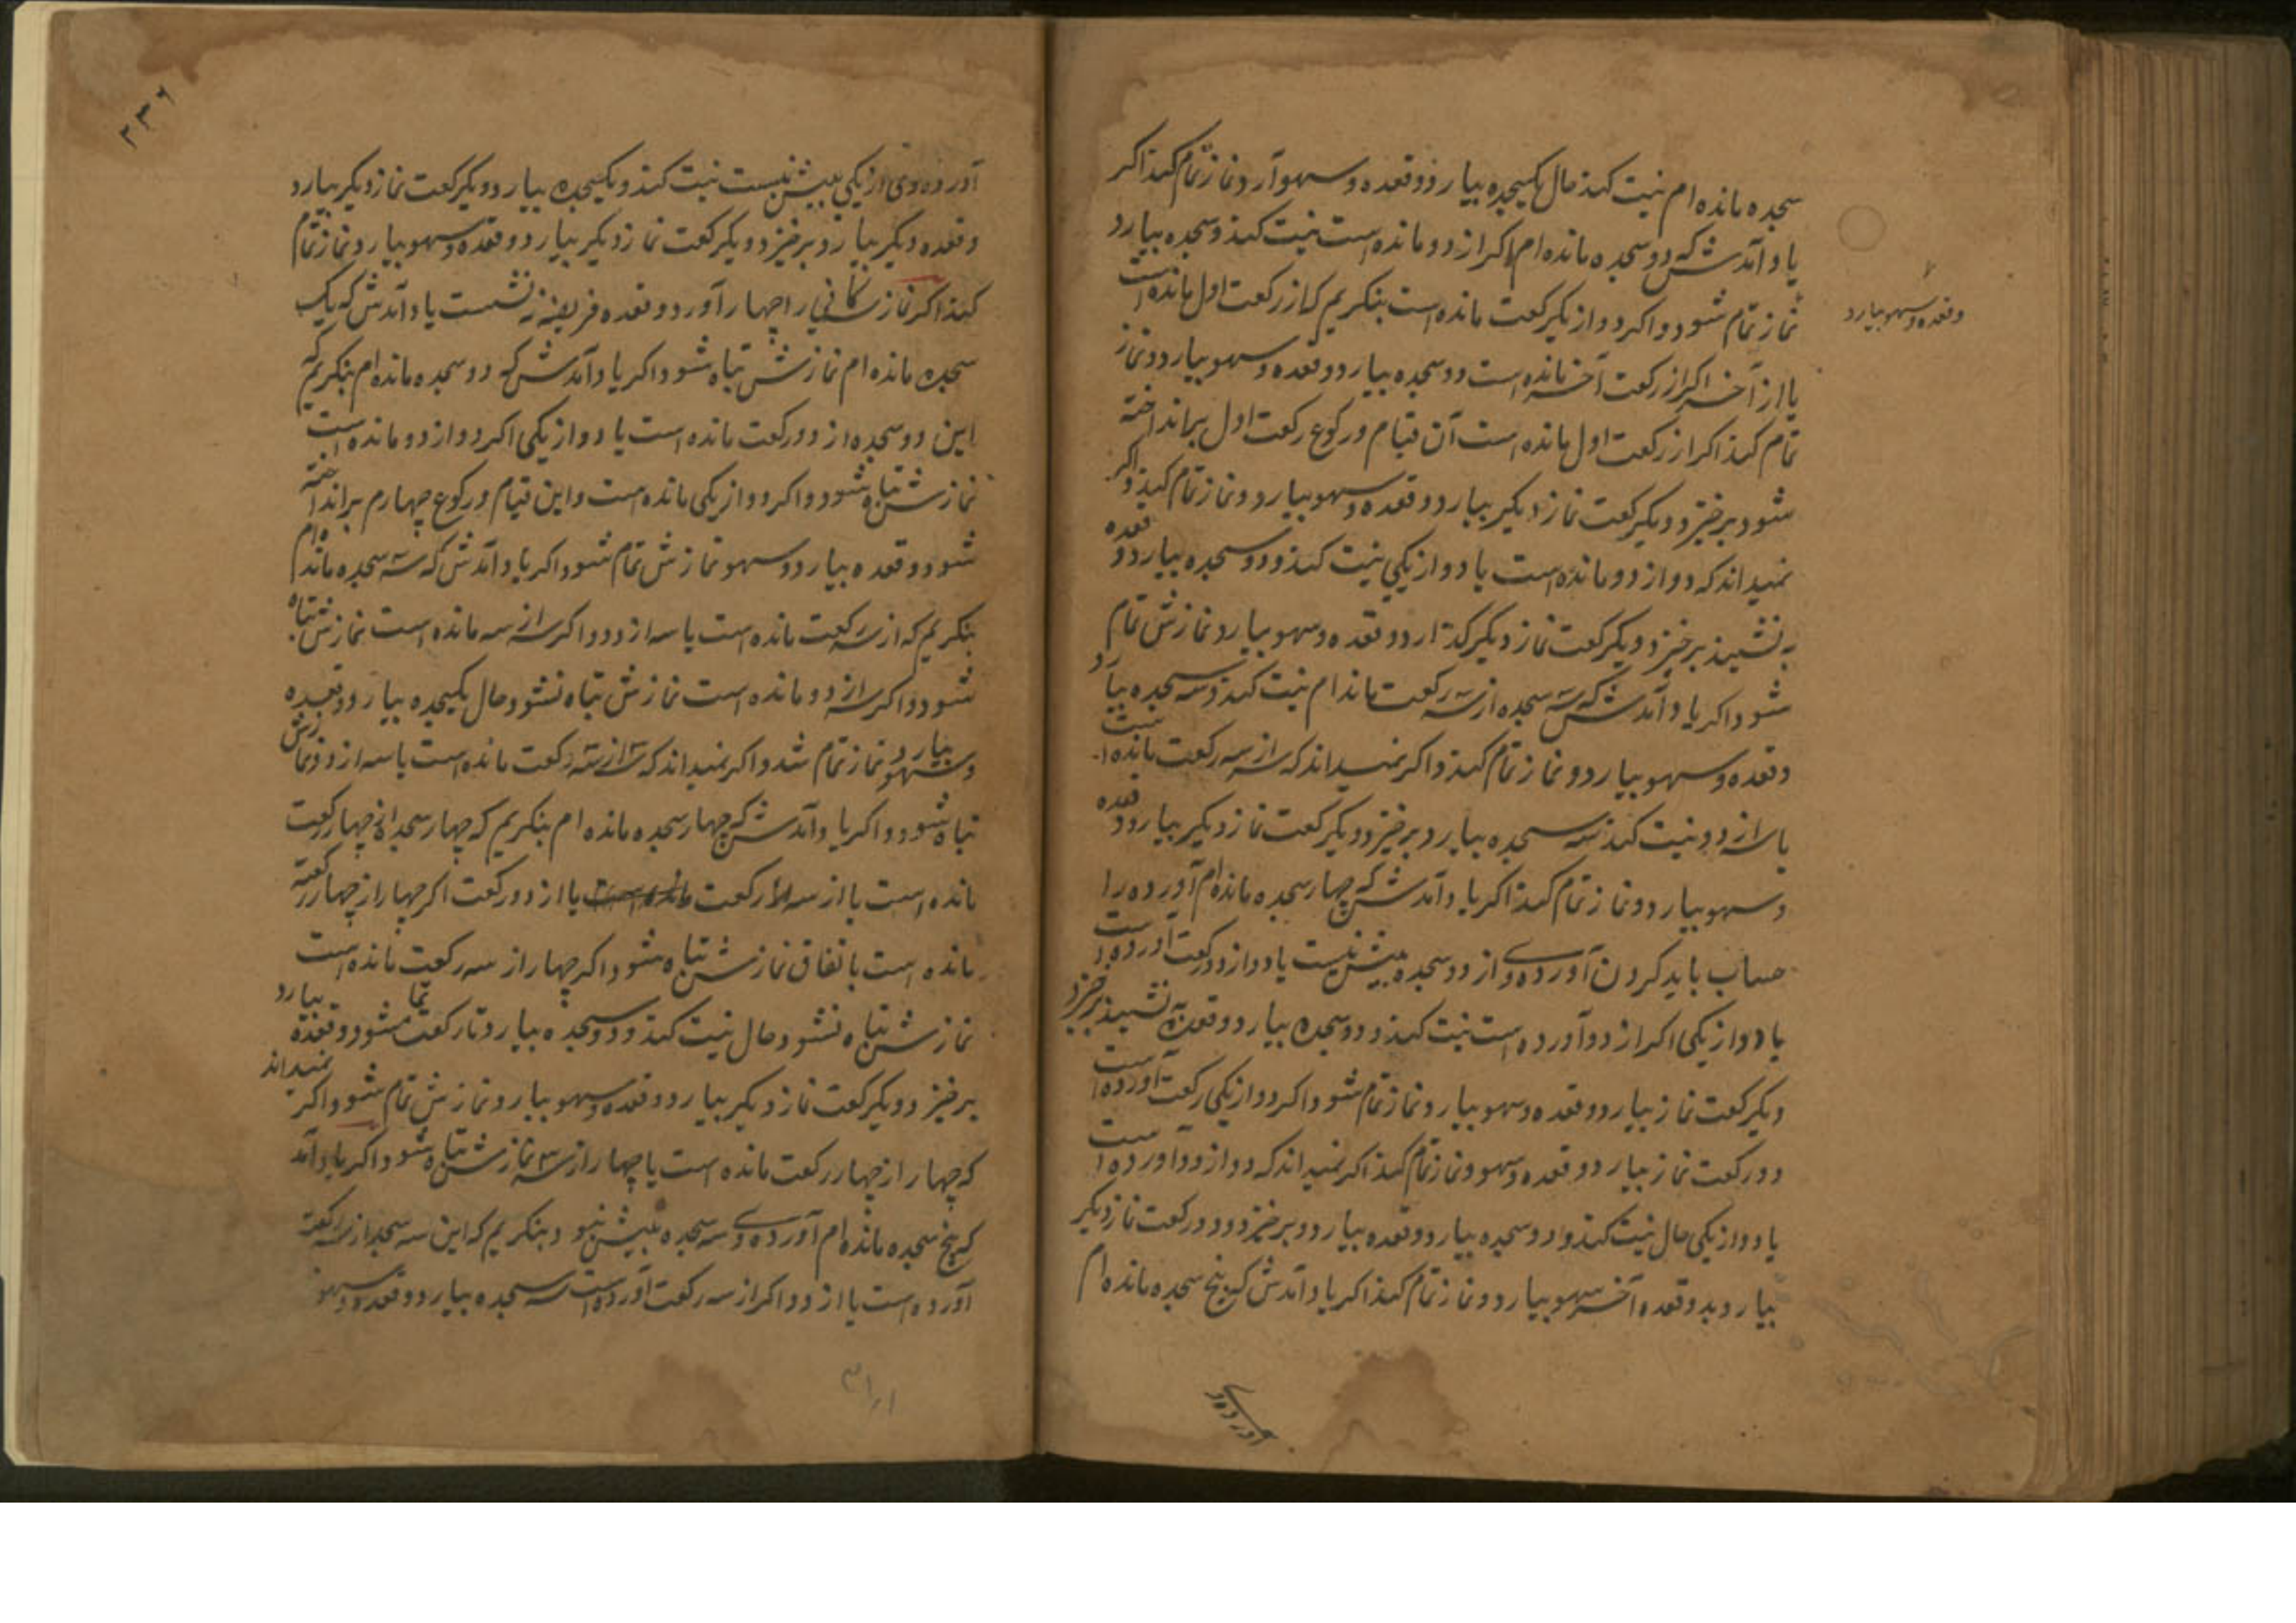 سجده مانده ام نیت کند حال یکسجده بیارد و قعده و سهو آرد و نماز تمام کند اکر
یاد آمدش که دو سجده مانده ام اکر از دو مانده است نیت کند و سجده بیارد
نماز تمام شود و اکر دو از یکرکعت مانده است بنکریم که از رکعت اول مانده است
یا از آخر اکر از رکعت آخر مانده است دو سجده بیارد و قعده و سهو بیارد و نماز
تمام کند اکر از رکعت اول مانده است آن قیام و رکوع رکعت اول برانداخته
شود برخیزد و یکرکعت نماز دیکر بیارد و قعده و سهو بیارد و نماز تمام کند و اکر
نمیداند که دو از دو مانده است یا دو از یکی نیت کند و دو سجده بیارد و قعده
به نشیند برخیزد و یکرکعت نماز دیکر کذارد و قعده و سهو بیارد نمازش تمام
شود اکر یاد آمدش که سه سجده از سه رکعت ماندام نیت کند و سه سجده بیارد
و قعده و سهو بیارد و نماز تمام کند و اکر نمیداند که سه از سه رکعت مانده است
یا سه از دو نیت کند سه سجده بیارد برخیزد و یکرکعت نماز دیکر بیارد و قعده
و سهو بیارد و نماز تمام کند اکر یاد آمدش که چهار سجده مانده ام آورده را
حساب باید کردن آورده وی از دو سجده بیش نیست یا دو از دو رکعت آورده است
یا دو از یکی اکر از دو آورده است نیت کند و دو سجده بیارد و قعده نشیند برخیزد
و یکرکعت نماز بیارد و قعده و سهو بیارد و نماز تمام شود اکر دو از یکی رکعت آورده است
دو رکعت نماز بیارد و قعده و سهو و نماز تمام کند اکر نمیداند که دو از دو آورده است
یا دو از یکی حال نیت کند و دو سجده بیارد و قعده بیارد و برخیزد و دو رکعت نماز دیکر
بیارد و قعده آخر سهو بیارد و نماز تمام کند اکر یاد آمدش که پنج سجده مانده ام
و قعده و سهو بیارد
آورده وی
۲۳۶
آورده وی از یکی بیش نیست نیت کند و یکسجده بیارد و یکرکعت نماز دیکر بیارد
و قعده دیکر بیارد و برخیزد و یکرکعت نماز دیکر بیارد و قعده و سهو بیارد و نماز تمام
کند اکر نماز را چهار آورد و قعده فریضه نه نشست یاد آمدش که یک
سجده مانده ام نمازش تباه شود اکر یاد آمدش که دو سجده مانده ام بنکریم که
این دو سجده از دو رکعت مانده است یا دو از یکی اکر دو از دو مانده است
نمازش تباه شود و اکر دو از یکی مانده است و این قیام و رکوع چهارم برانداخته
شود و قعده بیارد و سهو نمازش تمام شود اکر یاد آمدش که سه سجده مانده ام
بنکریم که از سه رکعت مانده است یا سه از دو و اکر سه از سه مانده است نمازش تباه
شود و اکر سه از دو مانده است نمازش تباه نشود حال یکسجده بیارد و قعده
و سهو بیارد نماز تمام شد و اکر نمیداند که سه از سه رکعت مانده است یا سه از دو نمازش
تباه شود و اکر یاد آمدش که چهار سجده مانده ام بنکریم که چهار سجده از چهار رکعت
مانده است یا از سه رکعت یا از دو رکعت اکر چهار از چهار رکعت
مانده است باتفاق نمازش تباه شود اکر چهار از سه رکعت مانده است
نمازش تباه نشود حال نیت کند و دو سجده بیارد تا رکعت تمام شود و قعده بیارد
برخیزد و یکرکعت نماز دیکر بیارد و قعده و سهو بیارد و نمازش تمام شود و اکر نمیداند
که چهار از چهار رکعت مانده است یا چهار از سه نمازش تباه شود و اکر یاد آمد
که پنج سجده مانده ام آورده وی سه سجده بیش نبود بنکریم که این سه سجده از سه رکعت
آورده است یا از دو اکر از سه رکعت آورده است سه سجده بیارد و قعده و سهو